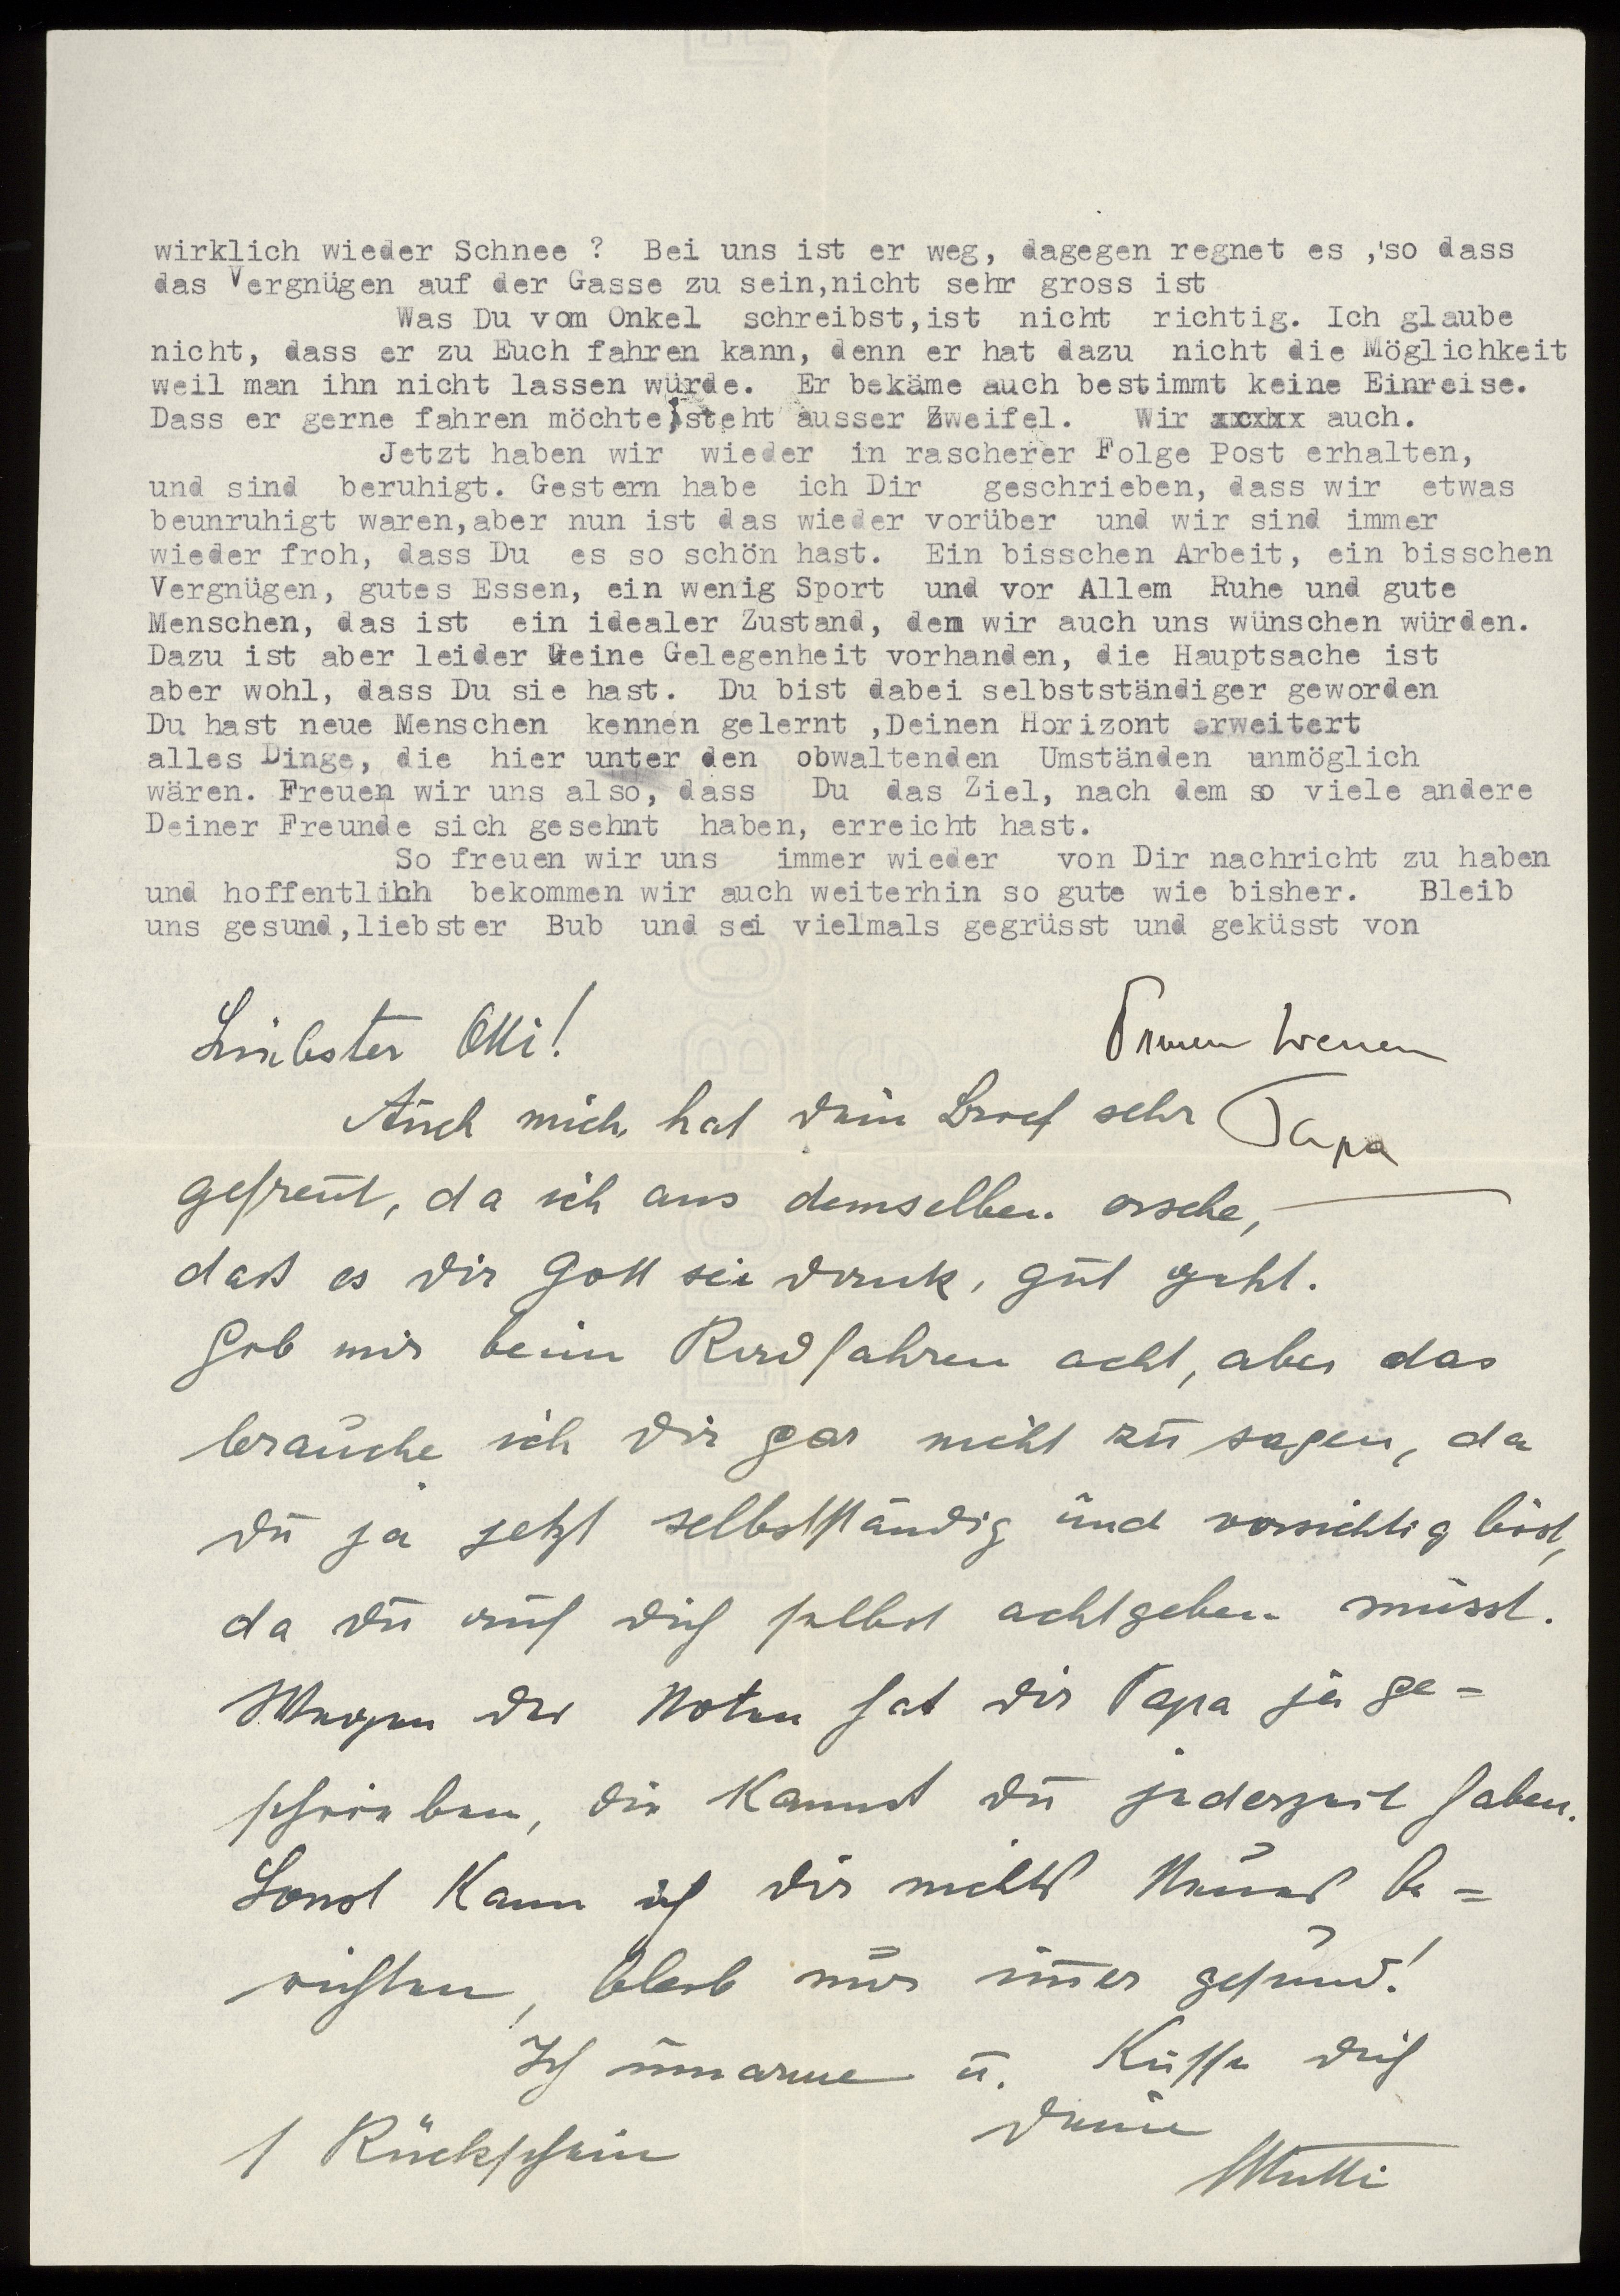 wirklich wieder Schnee ? Bei uns ist er weg, dagegen regnet es ,'so dass
das Vergnügen auf der Gasse zu sein,nicht sehr gross ist
Was Du vom Onkel schreibst,ist nicht richtig. Ich glaube
nicht, dass er zu Euch fahren kann, denn er hat dazu nicht die Möglichkeit
weil man ihn nicht lassen würde. Er bekäme auch bestimmt keine Einreise.
Dass er gerne fahren möchte,steht ausser Zweifel. Wir xxxxx auch.
Jetzt haben wir wieder in rascherer Folge Post erhalten,
und sind beruhigt. Gestern habe ich Dir geschrieben, dass wir etwas
beunruhigt waren,aber nun ist das wieder vorüber und wir sind immer
wieder froh, dass Du es so schön hast. Ein bisschen Arbeit, ein bisschen
Vergnügen, gutes Essen, ein wenig Sport und vor Allem Ruhe und gute
Menschen, das ist ein idealer Zustand, dem wir auch uns wünschen würden.
Dazu ist aber leider keine Gelegenheit vorhanden, die Hauptsache ist
aber wohl, dass Du sie hast. Du bist dabei selbstständiger geworden
Du hast neue Menschen kennen gelernt ,Deinen Horizont erweitert
alles Dinge, die hier unter den obwaltenden Umständen unmöglich
wären. Freuen wir uns also, dass Du das Ziel, nach dem so viele andere
Deiner Freunde sich gesehnt haben, erreicht hast.
So freuen wir uns immer wieder von Dir nachricht zu haben
und hoffentlich bekommen wir auch weiterhin so gute wie bisher. Bleib
uns gesund,liebster Bub und sei vielmals gegrüsst und geküsst von
Papa
Liebster Otti!
Auch mich hat dein Brief sehr
gefreut, da ich aus demselben ersehe,
daß es dir Gott sei dank, gut geht.
Gib mir beim Radfahren acht, aber das
brauche ich dir gar nicht zu sagen, da
du ja jetzt selbstständig und vorsichtig bist,
da du auf dich selbst achtgeben musst.
Wegen der Noten hat dir Papa ja ge=
schrieben, die kannst du jederzeit haben.
Sonst kann ich dir nichts Neues be=
richten, bleib nur im̅er gesund!
Ich umarme u. küsse dich
deine
Mutti
1 Rückschein